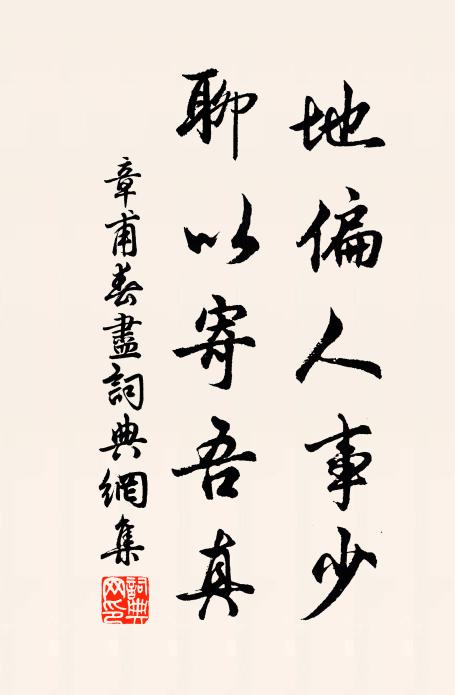 地偏人事少
聊以寄吾真
章甫春盡詞典網集
詞典網印